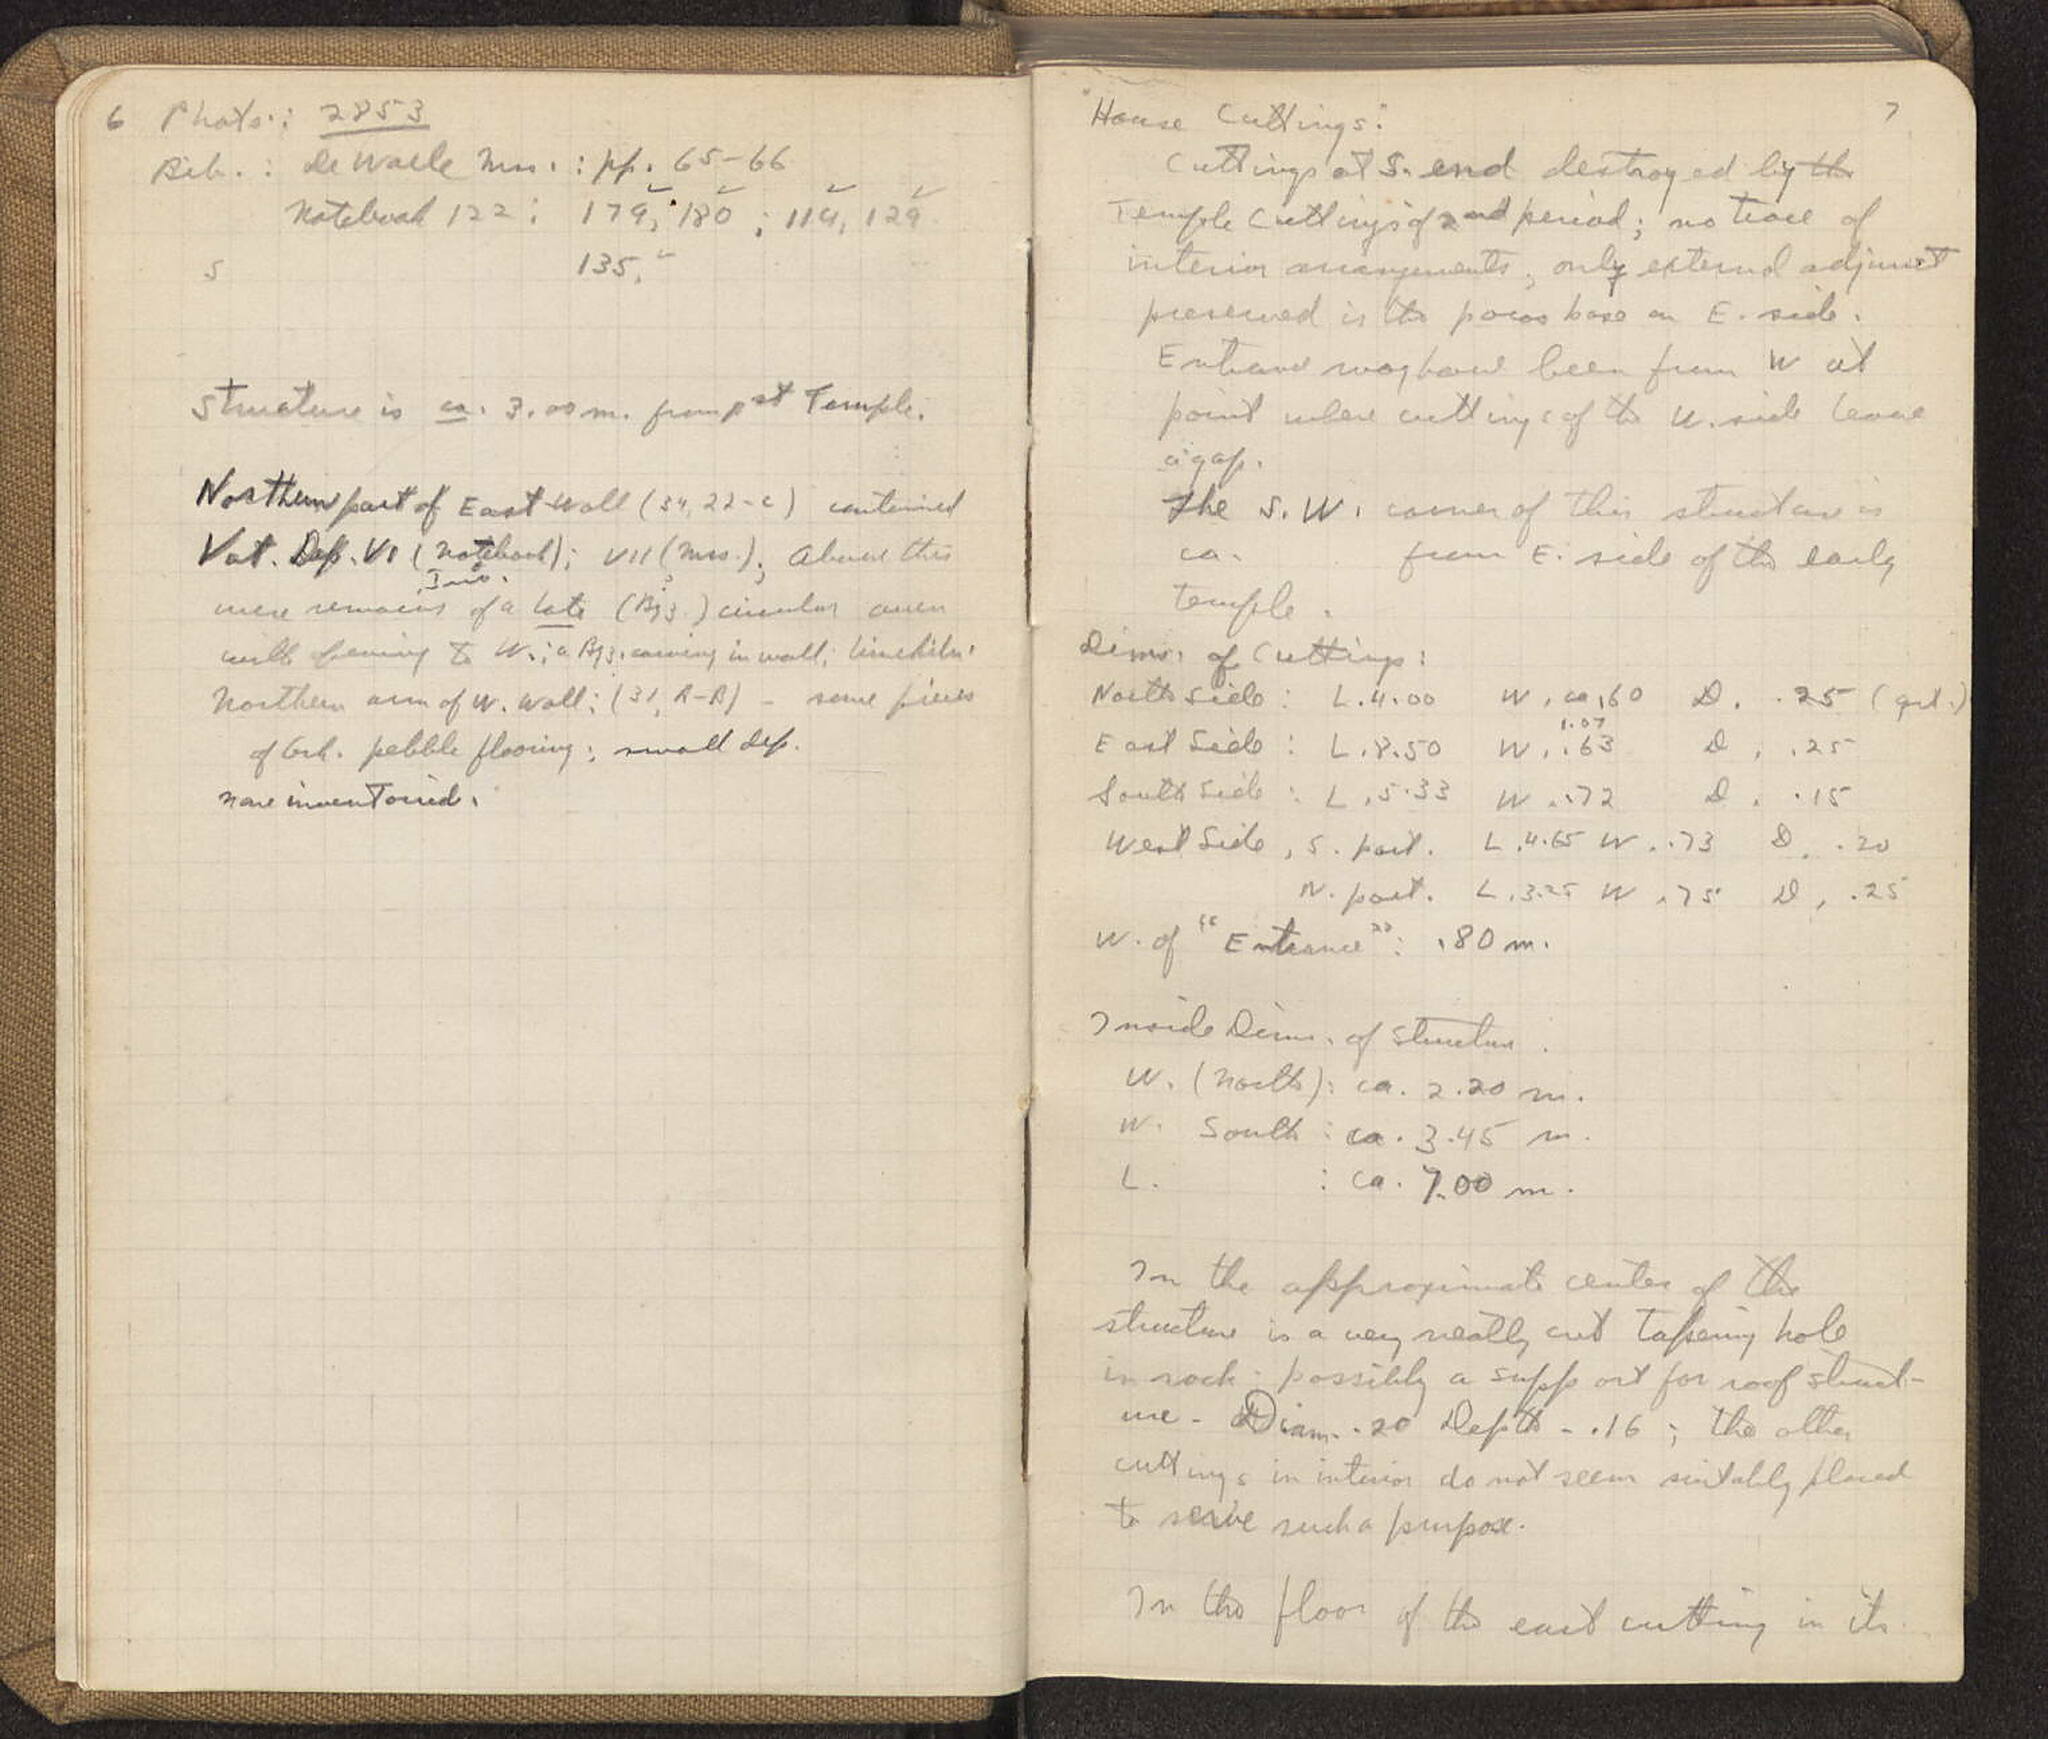 6 Photo.: 2853
Bib.: De Waele Mss.: pp. 65-66
Notebook 122: 179, 180; 114, 129.
S 135,
Structure is ca. 3.00 m. from 1st Temple.
Northern part of East Wall (34, 22-C) contained
Vot. Dep. VI (Notebook); VII (Mss.); Above this
were remains of a late (Byz.) circular oven
with opening to W.; a Byz. coin in wall;
Northern arm of W. Wall; (31, A-B) - some pieces
of Grk. pebble flooring; small dep.
none inventoried.
7
"House Cuttings":
Cuttings at S. end destroyed by the
Temple Cuttings of 2nd period; no trace of
interior arrangements; only external adjunct
preserved is the poros base on E. side.
Entrance may have been from W at
point where cuttings of the W. side leave
a gap.
The S.W. corner of this structure is
ca. from E. side of the early
temple.
Dims. of Cuttings:
North Side: L. 4.00 W. ca .60 D. .25 (grt.)
1.07
East Side: L. 8.50 W. .63 D. .25
South Side: L. 5.33 W. .72 D. .15
West Side, S. part. L. 4.65 W. .73 D. .20
N. part. L. 3.25 W .75 D. .25
W. of "Entrance": .80 m.
Inside Dims. of Structure.
W. (North): ca. 2.20 m.
W. South: ca. 3.45 m.
L. : ca. 7.00 m.
In the approximate center of the
structure is a very neatly cut tapering hole
in rock: possibly a support for roof struct-
ure - Diam. .20 Depth - .16; the other
cuttings in interior do not seem suitably placed
to serve such a purpose.
In the floor of the east cutting in its